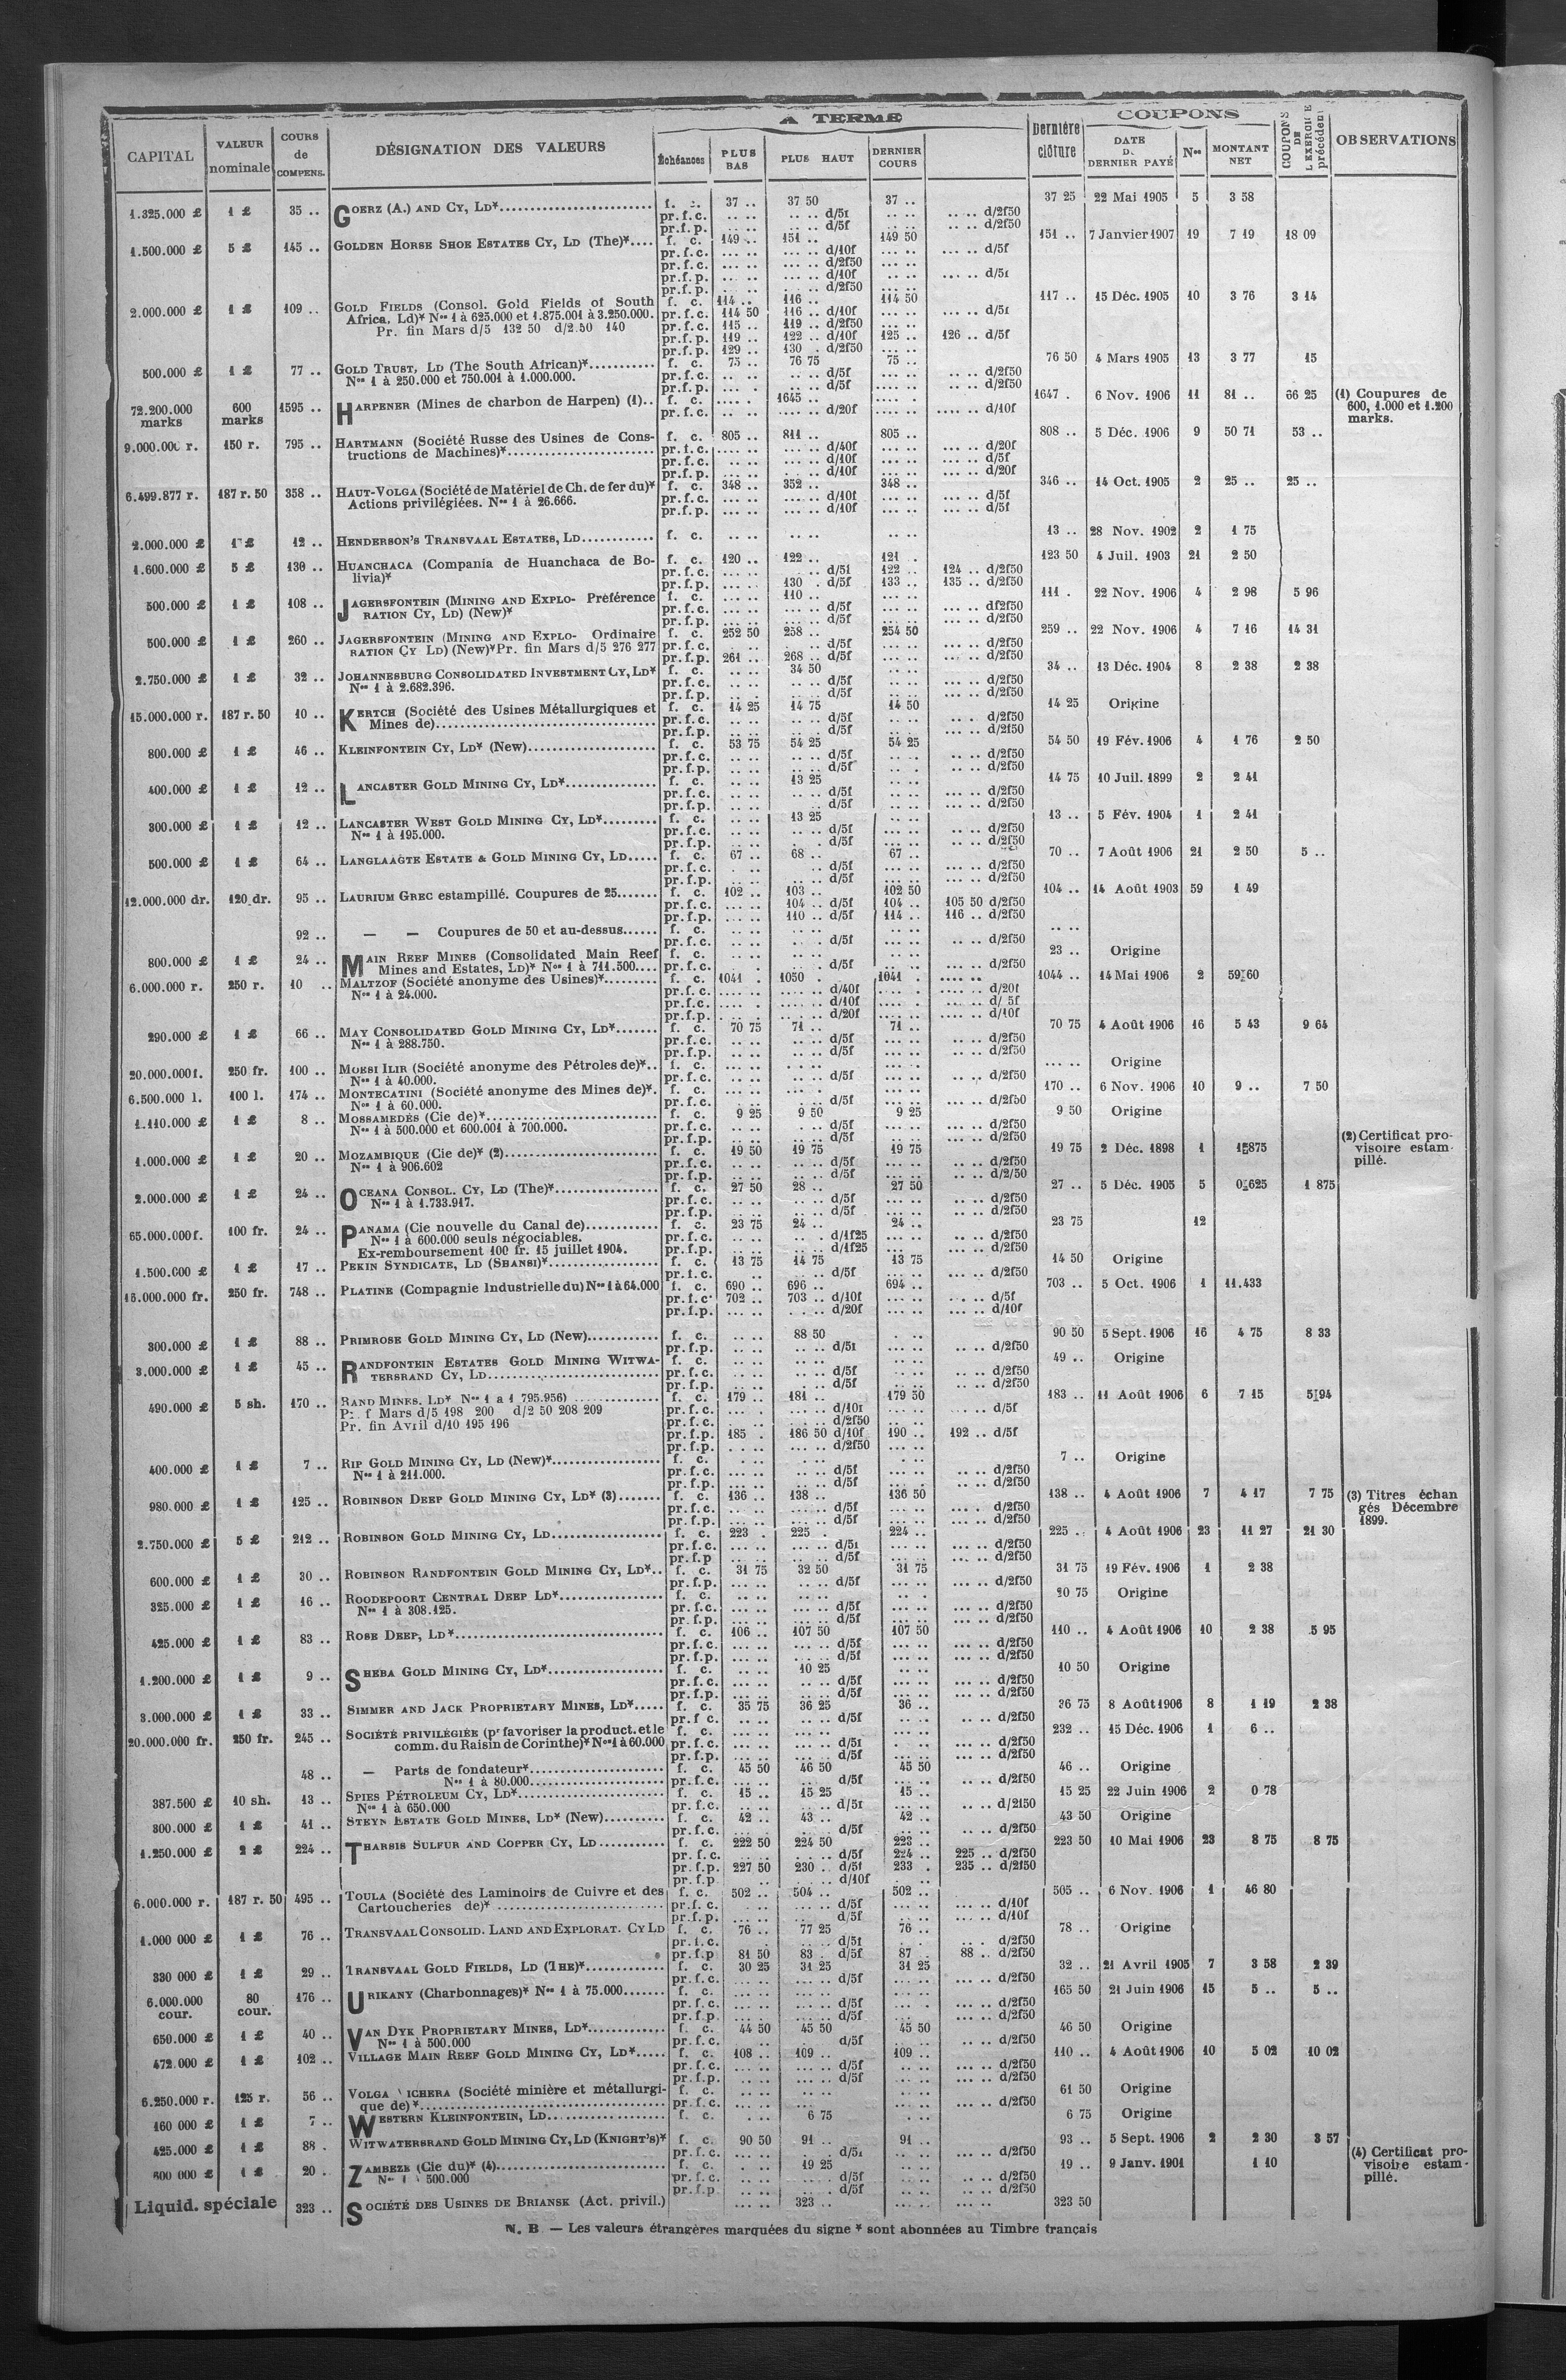 A TERME
COUPONS
CAPITAL | VALEUR nominale | COURS de COMPENS. | DÉSIGNATION DES VALEURS | Échéances | PLUS BAS | PLUS HAUT | DERNIER COURS | Dernière clôture | DATE DU DERNIER PAYÉ | Nos | MONTANT NET | COUPONS DE L'EXERCICE précédent | OBSERVATIONS
1.325.000 £ | 1 £ | 35 .. | GOERZ (A.) AND CY, LD* | f. c. | 37 .. | 37 50 | 37 .. | 37 25 | 22 Mai 1905 | 5 | 3 58
pr.f.c. | .. .. | .. .. d/5f | .. .. | .. .. d/2f50
pr.f.p. | .. .. | .. .. d/5f | .. .. | .. .. d/2f50
1.500.000 £ | 5 £ | 145 .. | GOLDEN HORSE SHOE ESTATES CY, LD (The)* | f. c. | 149 .. | 151 .. | 149 50 | 151 .. | 7 Janvier 1907 | 19 | 7 19 | 18 09
pr.f.c. | ... .. | ... .. d/10f | ... .. | ... .. d/5f
pr.f.c. | ... .. | ... .. d/2f50 | ... ..
pr.f.p. | ... .. | ... .. d/10f | ... .. | ... .. d/5f
pr.f.p. | ... .. | ... .. d/2f50 | ... ..
2.000.000 £ | 1 £ | 109 .. | GOLD FIELDS (Consol. Gold Fields of South | f. c. | 114 .. | 116 .. | 114 50 | 117 .. | 15 Déc. 1905 | 10 | 3 76 | 3 14
Africa, Ld)* Nos 1 à 625.000 et 1.875.001 à 3.250.000. | pr.f.c. | 114 50 | 116 .. d/10f | ... .. | ... .. d/5f
Pr. fin Mars d/5 132 50 d/2.50 140 | pr.f.c. | 115 .. | 119 .. d/2f50 | ... ..
pr.f.p. | 119 .. | 122 .. d/10f | 125 .. | 126 .. d/5f
pr.f.p. | 129 .. | 130 . d/2f50 | ... ..
500.000 £ | 1 £ | 77 .. | GOLD TRUST, LD (The South African)* | f. c. | 75 .. | 76 75 | 75 .. | 76 50 | 4 Mars 1905 | 13 | 3 77 | 15
Nos 1 à 250.000 et 750.001 à 1.000.000. | pr.f.c. | .. .. | .. .. d/5f | ... .. | .. .. d/2f50
pr.f.p. | ... . | .. .. d/5f | ... .. | .. .. d/2f50
72.200.000 marks | 600 marks | 1595 .. | HARPENER (Mines de charbon de Harpen) (1) | f. c. | .... . | 1645 .. | .... .. | 1647 . | 6 Nov. 1906 | 11 | 81 .. | 66 25 | (1) Coupures de 600, 1.000 et 1.200 marks.
pr.f.c. | .. .. | .... .. d/20f | .... .. | .... .. d/10f
9.000.000 r. | 150 r. | 795 .. | HARTMANN (Société Russe des Usines de Cons- | f. c. | 805 .. | 811 .. | 805 .. | 808 .. | 5 Déc. 1906 | 9 | 50 71 | 53 ..
tructions de Machines)* | pr.f.c. | ... .. | ... .. d/40f | ... .. | ... .. d/20f
pr.f.c. | ... .. | ... .. d/10f | ... .. | ... .. d/5f
pr.f.p. | ... .. | ... .. d/10f | ... .. | ... .. d/20f
6.499.877 r. | 187 r. 50 | 358 .. | HAUT-VOLGA (Société de Matériel de Ch. de fer du)* | f. c. | 348 .. | 352 .. | 348 .. | 346 .. | 14 Oct. 1905 | 2 | 25 .. | 25 ..
Actions privilégiées. Nos 1 à 26.666. | pr.f.c. | ... .. | ... .. d/10f | ... .. | ... .. d/5f
pr.f.p. | ... .. | ... .. d/10f | ... .. | ... .. d/5f
2.000.000 £ | 1 £ | 12 .. | HENDERSON'S TRANSVAAL ESTATES, LD | f. c. | .. .. | .. .. | .. .. | 13 .. | 28 Nov. 1902 | 2 | 1 75
1.600.000 £ | 5 £ | 130 .. | HUANCHACA (Compania de Huanchaca de Bo- | f. c. | 120 .. | 122 .. | 121 . | 123 50 | 4 Juil. 1903 | 21 | 2 50
livia)* | pr.f.c. | ... .. | .. .. d/5f | 122 .. | 124 .. d/2f50
pr.f.p. | ... .. | 130 . d/5f | 133 .. | 135 .. d/2f50
500.000 £ | 1 £ | 108 .. | JAGERSFONTEIN (MINING AND EXPLO- Préférence | f. c. | ... .. | 110 .. | ... .. | 111 . | 22 Nov. 1906 | 4 | 2 98 | 5 96
RATION CY, LD) (New)* | pr.f.c. | ... .. | ... .. d/5f | ... .. | ... .. df2f50
pr.f.p. | ... .. | ... .. d/5f | ... .. | ... .. d/2f50
500.000 £ | 1 £ | 260 .. | JAGERSFONTEIN (MINING AND EXPLO- Ordinaire | f. c. | 252 50 | 258 .. | 254 50 | 259 .. | 22 Nov. 1906 | 4 | 7 16 | 14 31
RATION CY LD) (New)* Pr. fin Mars d/5 276 277 | pr.f.c. | . .. | ... .. d/5f | ... .. | ... .. d/2f50
pr.f.p. | 261 .. | 268 .. d/5f | .. .. | ... .. d/2f50
2.750.000 £ | 1 £ | 32 .. | JOHANNESBURG CONSOLIDATED INVESTMENT CY, LD* | f. c. | .. .. | 34 50 | .. .. | 34 .. | 13 Déc. 1904 | 8 | 2 38 | 2 38
Nos 1 à 2.682.396. | pr.f.c. | .. .. | .. .. d/5f | ... .. | ... .. d/2f50
pr.f.p. | .. .. | .. .. d/5f | ... .. | ... .. d/2f50
15.000.000 r. | 187 r. 50 | 10 .. | KERTCH (Société des Usines Métallurgiques et | f. c. | 14 25 | 14 75 | 14 50 | 14 25 | Origine
Mines de) | pr.f.c. | .. .. | .. .. d/5f | .. .. | .. .. d/2f50
pr.f.p. | .. .. | .. .. d/5f | .. .. | ... .. d/2f50
800.000 £ | 1 £ | 46 .. | KLEINFONTEIN CY, LD* (New) | f. c. | 53 75 | 54 25 | 54 25 | 54 50 | 19 Fév. 1906 | 4 | 1 76 | 2 50
pr.f.c. | .. .. | .. .. d/5f | .. .. | .. .. d/2f50
pr.f.p. | .. .. | .. .. d/5f | .. . | .. .. d/2f50
400.000 £ | 1 £ | 12 .. | LANCASTER GOLD MINING CY, LD* | f. c. | .. .. | 13 25 | .. .. | 14 75 | 10 Juil. 1899 | 2 | 2 41
pr.f.c. | .. .. | .. .. d/5f | .. .. | ... .. d/2f50
pr.f.p. | .. .. | .. d/5f | .. .. | ... .. d/2f50
300.000 £ | 1 £ | 12 .. | LANCASTER WEST GOLD MINING CY, LD* | f. c. | .. .. | 13 25 | .. .. | 13 .. | 5 Fév. 1904 | 1 | 2 41
Nos 1 à 195.000. | pr.f.c. | .. .. | .. .. d/5f | ... .. | .. .. d/2f50
pr.f.p. | .. .. | . .. d/5f | ... .. | .. .. d/2f50
500.000 £ | 1 £ | 64 .. | LANGLAAGTE ESTATE & GOLD MINING CY, LD | f. c. | 67 .. | 68 .. | 67 .. | 70 .. | 7 Août 1906 | 21 | 2 50 | 5 ..
pr.f.c. | . .. | .. .. d/5f | .. .. | ... .. d/2f50
pr.f.p. | .. .. | .. .. d/5f | .. .. | ... .. d/2f50
12.000.000 dr. | 120 dr. | 95 .. | LAURIUM GREC estampillé. Coupures de 25 | f. c. | 102 .. | 103 .. | 102 50 | 104 .. | 14 Août 1903 | 59 | 1 49
pr.f.c. | ... .. | 104 .. d/5f | 104 .. | 105 50 d/2f50
pr.f.p. | ... .. | 110 .. d/5f | 114 .. | 116 .. d/2f50
92 .. | — — Coupures de 50 et au-dessus | f. c. | .. .. | .. .. | ... .. | .. ..
pr.f.c. | .. .. | . . d/5f | ... .. | .. .. d/2f50
800.000 £ | 1 £ | 24 .. | MAIN REEF MINES (Consolidated Main Reef | f. c. | .. .. | .. .. | .. .. | 23 .. | Origine
Mines and Estates, LD)* Nos 1 à 711.500 | pr.f.c. | . . | . .. d/5f | ... .. | ... .. d/2f50
6.000.000 r. | 250 r. | 10 .. | MALTZOF (Société anonyme des Usines)* | f. c. | 1041 . | 1050 . | 1041 . | 1044 .. | 14 Mai 1906 | 2 | 59 60
Nos 1 à 24.000. | pr.f.c. | .... .. | .... .. d/40f | .... . | .... .. d/20f
pr.f.c. | .... .. | .... .. d/10f | .... . | .... .. d/ 5f
pr.f.p. | .... . | .... .. d/20f | .... .. | .... .. d/10f
290.000 £ | 1 £ | 66 .. | MAY CONSOLIDATED GOLD MINING CY, LD* | f. c. | 70 75 | 71 .. | 71 .. | 70 75 | 4 Août 1906 | 16 | 5 43 | 9 64
Nos 1 à 288.750. | pr.f.c. | .. .. | .. .. d/5f | ... .. | ... .. d/2f50
pr.f.p. | .. .. | .. .. d/5f | ... .. | ... .. d/2f50
20.000.000 f. | 250 fr. | 100 .. | MOESI ILIR (Société anonyme des Pétroles de)* | f. c. | ... .. | ... .. | ... .. | ... .. | Origine
Nos 1 à 40.000. | pr.f.c. | .. .. | ... .. d/5f | ... .. | .. .. d/2f50
6.500.000 l. | 100 l. | 174 .. | MONTECATINI (Société anonyme des Mines de)* | f. c. | ... .. | ... . | ... .. | 170 .. | 6 Nov. 1906 | 10 | 9 .. | 7 50
Nos 1 à 60.000. | pr.f.c. | .. .. | . .. d/5f | ... .. | ... .. d/2f50
1.110.000 £ | 1 £ | 8 .. | MOSSAMEDÈS (Cie de)* | f. c. | 9 25 | 9 50 | 9 25 | 9 50 | Origine
Nos 1 à 500.000 et 600.001 à 700.000. | pr.f.c. | .. .. | . .. d/5f | .. .. | ... .. d/2f50
pr.f.p. | .. .. | .. .. d/5f | .. .. | ... .. d/2f50
1.000.000 £ | 1 £ | 20 .. | MOZAMBIQUE (Cie de)* (2) | f. c. | 19 50 | 19 75 | 19 75 | 19 75 | 2 Déc. 1898 | 1 | 1 875 | (2) Certificat provisoire estampillé.
Nos 1 à 906.602 | pr.f.c. | .. .. | .. .. d/5f | ... .. | .. .. d/2f50
pr.f.p. | .. .. | .. .. d/5f | ... .. | .. .. d/2/50
2.000.000 £ | 1 £ | 24 .. | OCEANA CONSOL. CY, LD (The)* | f. c. | 27 50 | 28 .. | 27 50 | 27 .. | 5 Déc. 1905 | 5 | 0 625 | 1 875
Nos 1 à 1.733.917. | pr.f.c. | .. .. | .. .. d/5f | ... .. | .. .. d/2f50
pr.f.p. | .. .. | .. .. d/5f | ... .. | .. .. d/2f50
65.000.000 f. | 100 fr. | 24 .. | PANAMA (Cie nouvelle du Canal de) | f. c. | 23 75 | 24 .. | 24 .. | 23 75 | 12
Nos 1 à 600.000 seuls négociables. | pr.f.c. | .. .. | .. . d/1f25 | ... .. | .. .. d/2f50
Ex-remboursement 100 fr. 15 juillet 1904. | pr.f.p. | .. .. | .. .. d/1f25 | ... .. | ... .. d/2f50
1.500.000 £ | 1 £ | 17 .. | PEKIN SYNDICATE, LD (SHANSI)* | f. c. | 13 75 | 14 75 | 13 75 | 14 50 | Origine
pr.f.c. | .. | .. .. d/5f | ... .. | ... .. d/2f50
16.000.000 fr. | 250 fr. | 748 .. | PLATINE (Compagnie Industrielle du) Nos 1 à 64.000 | f. c. | 690 .. | 696 .. | 694 .. | 703 .. | 5 Oct. 1906 | 1 | 11.433
pr.f.c. | 702 .. | 703 .. d/10f | ... .. | ... .. d/5f
pr.f.p. | ... .. | . .. d/20f | ... .. | ... .. d/10f
300.000 £ | 1 £ | 88 .. | PRIMROSE GOLD MINING CY, LD (New) | f. c. | .. .. | 88 50 | . .. | 90 50 | 5 Sept. 1906 | 16 | 4 75 | 8 33
pr.f.p. | .. .. | .. .. d/5f | ... .. | ... .. d/2f50
3.000.000 £ | 1 £ | 45 .. | RANDFONTEIN ESTATES GOLD MINING WITWA- | f. c. | .. .. | .. .. | .. .. | 49 .. | Origine
TERSRAND CY, LD | pr.f.c. | .. .. | .. .. d/5f | ... .. | ... .. d/2f50
pr.f.p. | .. .. | .. .. d/5f | ... .. | .. .. d/2f50
490.000 £ | 5 sh. | 170 .. | RAND MINES. LD* Nos 1 a 1 795.956) | f. c. | 179 .. | 181 .. | 179 50 | 183 .. | 11 Août 1906 | 6 | 7 15 | 5 94
Pr. f Mars d/5 198 200 d/2 50 208 209 | pr.f.c. | ... . | ... .. d/10f | ... .. | ... .. d/5f
Pr. fin Avril d/10 195 196 | pr.f.c. | . .. | ... .. d/2f50 | ... ..
pr.f.p. | 185 . | 186 50 d/10f | 190 .. | 192 .. d/5f
pr.f.p. | . .. | ... .. d/2f50 | ... ..
400.000 £ | 1 £ | 7 .. | RIP GOLD MINING CY, LD (New)* | f. c. | . .. | . .. | . .. | 7 .. | Origine
Nos 1 à 211.000. | pr.f.c. | ... .. | .. .. d/5f | ... .. | .. .. d/2f50
pr.f.p. | ... .. | .. .. d/5f | ... .. | .. .. d/2f50
980.000 £ | 1 £ | 125 .. | ROBINSON DEEP GOLD MINING CY, LD* (3) | f. c. | 136 .. | 138 .. | 136 50 | 138 .. | 4 Août 1906 | 7 | 4 17 | 7 75 | (3) Titres échangés Décembre 1899.
pr.f.c. | ... .. | ... .. d/5f | ... .. | ... . d/2f50
pr.f.p. | ... .. | ... .. d/5f | ... .. | ... .. d/2f50
2.750.000 £ | 5 £ | 212 .. | ROBINSON GOLD MINING CY, LD | f. c. | 223 . | 225 . | 224 .. | 225 .. | 4 Août 1906 | 23 | 11 27 | 21 30
pr.f.c. | ... .. | ... .. d/5f | ... .. | ... .. d/2f50
pr.f.p | ... .. | ... .. d/5f | ... .. | ... .. d/2f50
600.000 £ | 1 £ | 30 .. | ROBINSON RANDFONTEIN GOLD MINING CY, LD* | f. c. | 31 75 | 32 50 | 31 75 | 31 75 | 19 Fév. 1906 | 1 | 2 38
pr.f.p. | ... .. | .. .. d/5f | ... .. | ... .. d/2f50
325.000 £ | 1 £ | 16 .. | ROODEPOORT CENTRAL DEEP LD* | f. c. | .. .. | .. .. | .. .. | 20 75 | Origine
Nos 1 à 308.125. | pr.f.c. | ... .. | ... .. d/5f | ... .. | ... .. d/2f50
pr.f.p. | ... .. | ... .. d/5f | ... .. | ... .. d/2f50
425.000 £ | 1 £ | 83 .. | ROSE DEEP, LD* | f. c. | 106 .. | 107 50 | 107 50 | 110 .. | 4 Août 1906 | 10 | 2 38 | 5 95
pr.f.c. | ... .. | ... .. d/5f | ... .. | ... .. d/2f50
pr.f.p. | ... .. | ... .. d/5f | ... .. | ... .. d/2f50
1.200.000 £ | 1 £ | 9 .. | SHEBA GOLD MINING CY, LD* | f. c. | .. .. | 10 25 | .. .. | 10 50 | Origine
pr.f.c. | ... .. | .. .. d/5f | ... .. | ... .. d/2f50
pr.f.p. | ... .. | .. .. d/5f | ... .. | ... .. d/2f50
3.000.000 £ | 1 £ | 33 .. | SIMMER AND JACK PROPRIETARY MINES, LD* | f. c. | 35 75 | 36 25 | 36 .. | 36 75 | 8 Août 1906 | 8 | 1 19 | 2 38
pr.f c. | .. .. | .. .. d/5f | ... .. | .. .. d/2f50
20.000.000 fr. | 250 fr. | 245 .. | SOCIÉTÉ PRIVILÉGIÉE (pr favoriser la product. et le | f. c. | ... .. | ... .. | ... .. | 232 .. | 15 Déc. 1906 | 1 | 6 ..
comm. du Raisin de Corinthe)* Nos 1 à 60.000 | pr.f.c. | ... .. | ... .. d/5f | . .. | ... .. d/2f50
pr.f.p. | ... .. | ... .. d/5f | ... .. | ... .. d/2f50
48 .. | — Parts de fondateur* | f. c. | 45 50 | 46 50 | 45 50 | 46 .. | Origine
Nos 1 à 80.000 | pr.f.c. | .. .. | .. .. d/5f | .. .. | .. .. d/2f50
387.500 £ | 10 sh. | 13 .. | SPIES PÉTROLEUM CY, LD* | f. c. | 15 .. | 15 25 | 15 .. | 15 25 | 22 Juin 1906 | 2 | 0 78
Nos 1 à 650.000 | pr.f.c. | .. .. | .. .. d/5f | ... .. | .. .. d/2f50
300.000 £ | 1 £ | 41 .. | STEYN ESTATE GOLD MINES, LD* (New) | f. c. | 42 .. | 43 .. | 42 .. | 43 50 | Origine
pr.f.c. | ... . | .. .. d/5f | ... .. | ... .. d/2f50
1.250.000 £ | 2 £ | 224 .. | THARSIS SULFUR AND COPPER CY, LD | f. c. | 222 50 | 224 50 | 223 .. | 223 50 | 10 Mai 1906 | 23 | 8 75 | 8 75
pr. f.c. | ... .. | . .. d/5f | 224 .. | 225 .. d/2f50
pr.f.p. | 227 50 | 230 .. d/5f | 233 . | 235 .. d/2f50
pr.f.p | .. | .. .. d/10f | ..
6.000.000 r. | 187 r. 50 | 495 .. | TOULA (Société des Laminoirs de Cuivre et des | f. c. | 502 .. | 504 .. | 502 .. | 505 .. | 6 Nov. 1906 | 1 | 46 80
Cartoucheries de)* | pr.f. c. | . .. | ... .. d/5f | ... .. | ... .. d/10f
pr.f.p. | ... .. | ... .. d/5f | ... .. | ... .. d/10f
1.000 000 £ | 1 £ | 76 .. | TRANSVAAL CONSOLID. LAND AND EXPLORAT. CY LD | f. c. | 76 .. | 77 25 | 76 .. | 78 .. | Origine
pr.f.c. | .. .. | . .. d/5f | . . | .. . d/2f50
pr.f.p | 81 50 | 83 . d/5f | 87 . | 88 .. d/2f50
330 000 £ | 1 £ | 29 .. | TRANSVAAL GOLD FIELDS, LD (THE)* | f. c. | 30 25 | 31 25 | 31 25 | 32 .. | 21 Avril 1905 | 7 | 3 58 | 2 39
pr.f.c. | ... .. | ... .. d/5f | ... .. | ... .. d/2f50
6.000.000 cour. | 80 cour. | 176 .. | URIKANY (Charbonnages)* Nos 1 à 75.000 | f. c. | ... .. | ... .. | ... .. | 165 50 | 21 Juin 1906 | 15 | 5 .. | 5 ..
pr.f.c. | ... .. | ... .. d/5f | .. . | ... .. d/2f50
pr.f.p. | ... .. | ... .. d/5f | ... .. | ... .. d/2f50
650.000 £ | 1 £ | 40 .. | VAN DYK PROPRIETARY MINES, LD* | f. c. | 44 50 | 45 50 | 45 50 | 46 50 | Origine
Nos 1 à 500.000 | pr.f.c. | .. .. | .. d/5f | ... .. | .. .. d/2f50
472.000 £ | 1 £ | 102 .. | VILLAGE MAIN REEF GOLD MINING CY, LD* | f. c. | 108 .. | 109 .. | 109 .. | 110 .. | 4 Août 1906 | 10 | 5 02 | 10 02
pr.f.c. | ... .. | ... .. d/5f | ... .. | ... .. d/2f50
pr.f.p. | ... .. | ... .. d/5f | ... .. | ... .. d/2f50
6.250.000 r. | 125 r. | 56 .. | VOLGA VICHERA (Société minière et métallurgi- | f. c. | .. .. | .. .. | .. .. | 61 50 | Origine
que de)* | pr.f.c. | ... .. | ... | ... .. | ... .. d/2f50
160 000 £ | 1 £ | 7 .. | WESTERN KLEINFONTEIN, LD | f. c. | . .. | 6 75 | . .. | 6 75 | Origine
425.000 £ | 1 £ | 88 . | WITWATERSRAND GOLD MINING CY, LD (KNIGHT'S)* | f. c. | 90 50 | 91 .. | 91 .. | 93 .. | 5 Sept. 1906 | 2 | 2 30 | 3 57
pr.f.c. | ... .. | .. .. d/5f | ... .. | ... .. d/2f50
600 000 £ | 1 £ | 20 . | ZAMBEZE (Cie du)* (4) | f. c. | . .. | 19 25 | .. .. | 19 .. | 9 Janv. 1901 | 1 10 | (4) Certificat provisoire estampillé.
Nos 1 à 500.000 | pr.f.c. | ... .. | ... .. d/5f | .. .. | .. .. d/2f50
pr.f.p | ... .. | .. .. d/5f | .. .. | .. .. d/2f50
Liquid. spéciale | 323 .. | SOCIÉTÉ DES USINES DE BRIANSK (Act. privil.) | ... .. | 323 .. | ... .. | ... .. | 323 50
N. B — Les valeurs étrangères marquées du signe * sont abonnées au Timbre français